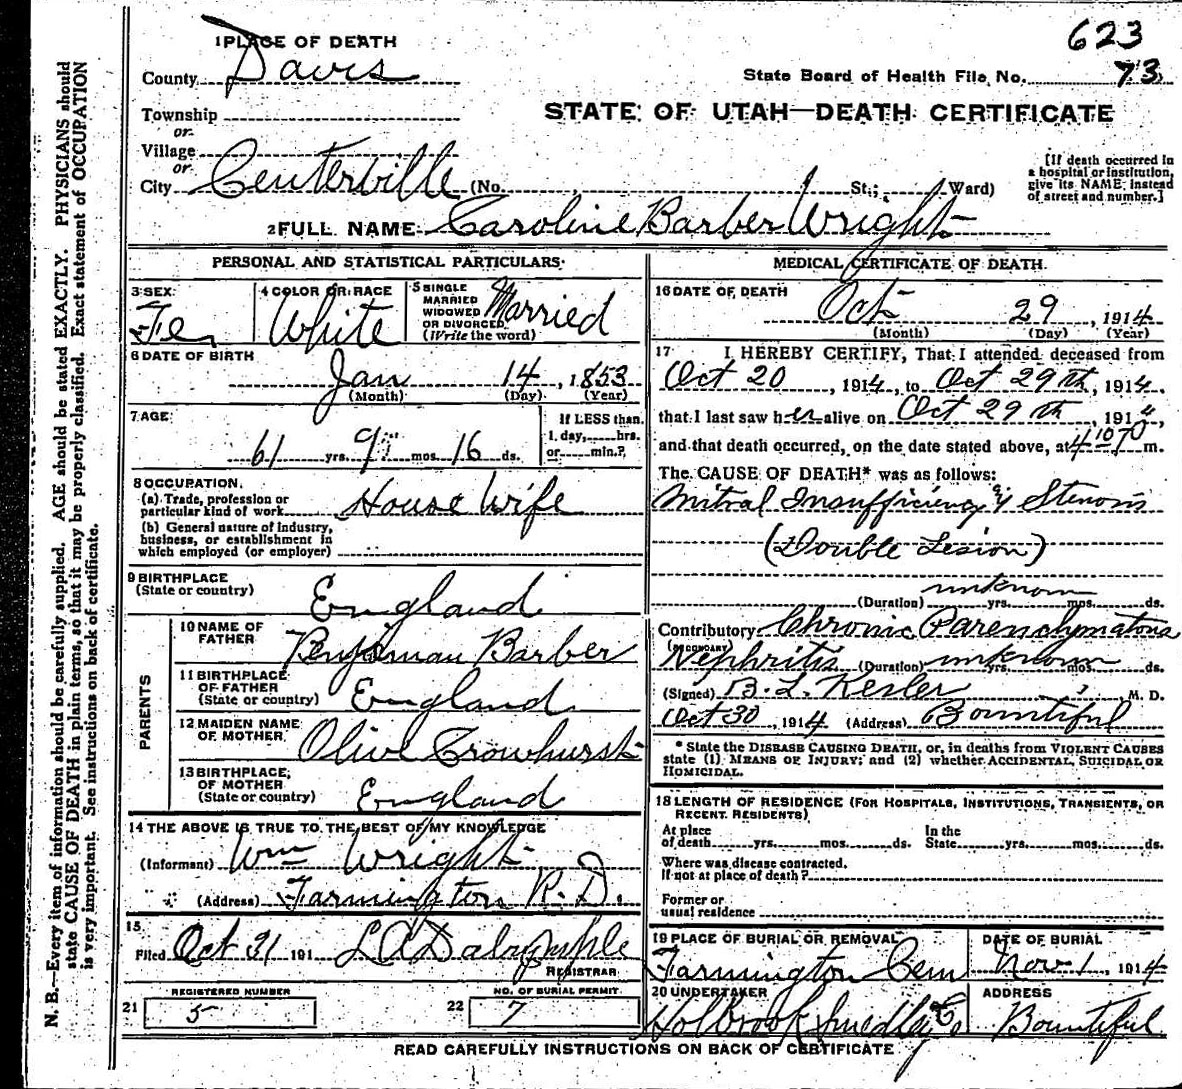 623
1 PLACE OF DEATH
County Davis
State Board of Health File No. 73
Township
or
Village
or
STATE OF UTAH—DEATH CERTIFICATE
City Centerville (No. , 1 St.; 1 Ward)
[If death occurred in
a hospital or institution,
give its NAME instead
of street and number.]
2 FULL NAME Caroline Barber Wright
PERSONAL AND STATISTICAL PARTICULARS
3 SEX
Fe
4 COLOR OR RACE
White
5 SINGLE
MARRIED
WIDOWED
OR DIVORCED
(Write the word)
Married
6 DATE OF BIRTH
Jan 14, 1853
(Month) (Day) (Year)
7 AGE
61 yrs. 9 mos. 16 ds.
If LESS than
1 day, hrs.
or min.?
8 OCCUPATION
(a) Trade, profession or
particular kind of work House Wife
(b) General nature of industry,
business, or establishment in
which employed (or employer)
9 BIRTHPLACE
(State or country) England
PARENTS
10 NAME OF
FATHER Benjaman Barber
11 BIRTHPLACE
OF FATHER
(State or country) England
12 MAIDEN NAME
OF MOTHER Olive Crowhurst
13 BIRTHPLACE
OF MOTHER
(State or country) England
14 THE ABOVE IS TRUE TO THE BEST OF MY KNOWLEDGE
(Informant) Wm Wright
(Address) Farmington R. D.
15
Filed Oct 31 191 L A Dalrymple
REGISTRAR
REGISTERED NUMBER
21 5
NO. OF BURIAL PERMIT
22 7
MEDICAL CERTIFICATE OF DEATH
16 DATE OF DEATH
Oct 29, 1914
(Month) (Day) (Year)
17 I HEREBY CERTIFY, That I attended deceased from
Oct 20, 1914, to Oct 29th, 1914
that I last saw her alive on Oct 29th, 1914,
and that death occurred, on the date stated above, at 4 10 P m.
The CAUSE OF DEATH* was as follows:
Mitral Insufficiency & Stenosis
(Double Lesion)
(Duration) unknown yrs. mos. ds.
Contributory Chronic Parenchymatous
(SECONDARY)
Nephritis (Duration) unknown mos. ds.
(Signed) B. L. Kesler, M. D.
Oct 30, 1914 (Address) Bountiful
* State the DISEASE CAUSING DEATH, or, in deaths from VIOLENT CAUSES
state (1) MEANS OF INJURY; and (2) whether ACCIDENTAL, SUICIDAL OR
HOMICIDAL.
18 LENGTH OF RESIDENCE (FOR HOSPITALS, INSTITUTIONS, TRANSIENTS, OR
RECENT RESIDENTS)
At place
of death yrs. mos. ds.
In the
State yrs. mos. ds.
Where was disease contracted.
If not at place of death?
Former or
usual residence
19 PLACE OF BURIAL OR REMOVAL
Farmington Cem
DATE OF BURIAL
Nov 1, 1914
20 UNDERTAKER
Holbrook Smedley Co
ADDRESS
Bountiful
READ CAREFULLY INSTRUCTIONS ON BACK OF CERTIFICATE
N. B.—Every item of information should be carefully supplied. AGE should be stated EXACTLY. PHYSICIANS should
state CAUSE OF DEATH in plain terms, so that it may be properly classified. Exact statement of OCCUPATION
is very important. See instructions on back of certificate.